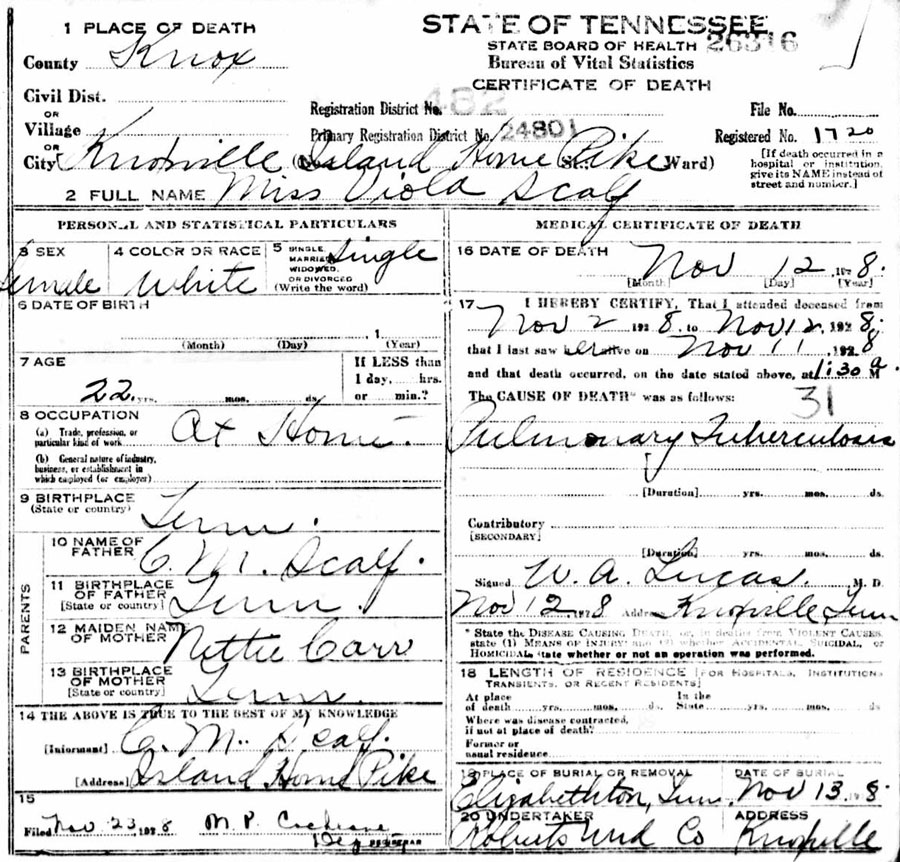 1 PLACE OF DEATH
County Knox
Civil Dist.
OR
Village
OR
City Knoxville (No. Island Home Pike St. Ward)
2 FULL NAME Miss Viola Scalf
STATE OF TENNESSEE
STATE BOARD OF HEALTH 26316
Bureau of Vital Statistics
CERTIFICATE OF DEATH
Registration District No. 482
File No.
Primary Registration District No. 24801
Registered No. 1720
[If death occurred in a
hospital or institution,
give its NAME instead of
street and number.]
PERSONAL AND STATISTICAL PARTICULARS
3 SEX Female
4 COLOR OR RACE White
5 SINGLE, MARRIED, WIDOWED, OR DIVORCED (Write the word) Single
6 DATE OF BIRTH
1
(Month) (Day) (Year)
7 AGE
22 yrs. mos. ds.
If LESS than
1 day, hrs.
or min.?
8 OCCUPATION
(a) Trade, profession, or
particular kind of work At Home.
(b) General nature of industry,
business, or establishment in
which employed (or employer)
9 BIRTHPLACE
(State or country) Tenn.
PARENTS
10 NAME OF
FATHER C. M. Scalf.
11 BIRTHPLACE
OF FATHER
[State or country] Tenn.
12 MAIDEN NAME
OF MOTHER Nettie Carr
13 BIRTHPLACE
OF MOTHER
[State or country] Tenn.
14 THE ABOVE IS TRUE TO THE BEST OF MY KNOWLEDGE
[Informant] C. M. Scalf.
[Address] Island Home Pike
15
Filed Nov 23 1928 M. P. Cochrane
Dep REGISTRAR
MEDICAL CERTIFICATE OF DEATH
16 DATE OF DEATH
Nov 12 1928.
[Month] [Day] [Year]
17 I HEREBY CERTIFY, That I attended deceased from
Nov 2 1928. to Nov 12, 1928
that I last saw her alive on Nov 11, 1928
and that death occurred, on the date stated above, at 1:30 a. M
The CAUSE OF DEATH* was as follows: 31
Pulmonary Tuberculosis
[Duration] yrs. mos. ds.
Contributory
[SECONDARY]
[Duration] yrs. mos. ds.
Signed W. A. Lucas. M. D.
Nov 12 1928 Address Knoxville Tenn
* State the DISEASE CAUSING DEATH, or, in deaths from VIOLENT CAUSES,
state (1) MEANS OF INJURY; and (2) whether ACCIDENTAL, SUICIDAL, or
HOMICIDAL, state whether or not an operation was performed.
18 LENGTH OF RESIDENCE [FOR HOSPITALS, INSTITUTIONS
TRANSIENTS, OR RECENT RESIDENTS]
At place In the
of death yrs. mos. ds. State yrs. mos. ds
Where was disease contracted,
if not at place of death?
Former or
usual residence
19 PLACE OF BURIAL OR REMOVAL DATE OF BURIAL
Elizabethton, Tenn. Nov 13. 1928.
20 UNDERTAKER ADDRESS
Roberts Und Co Knoxville